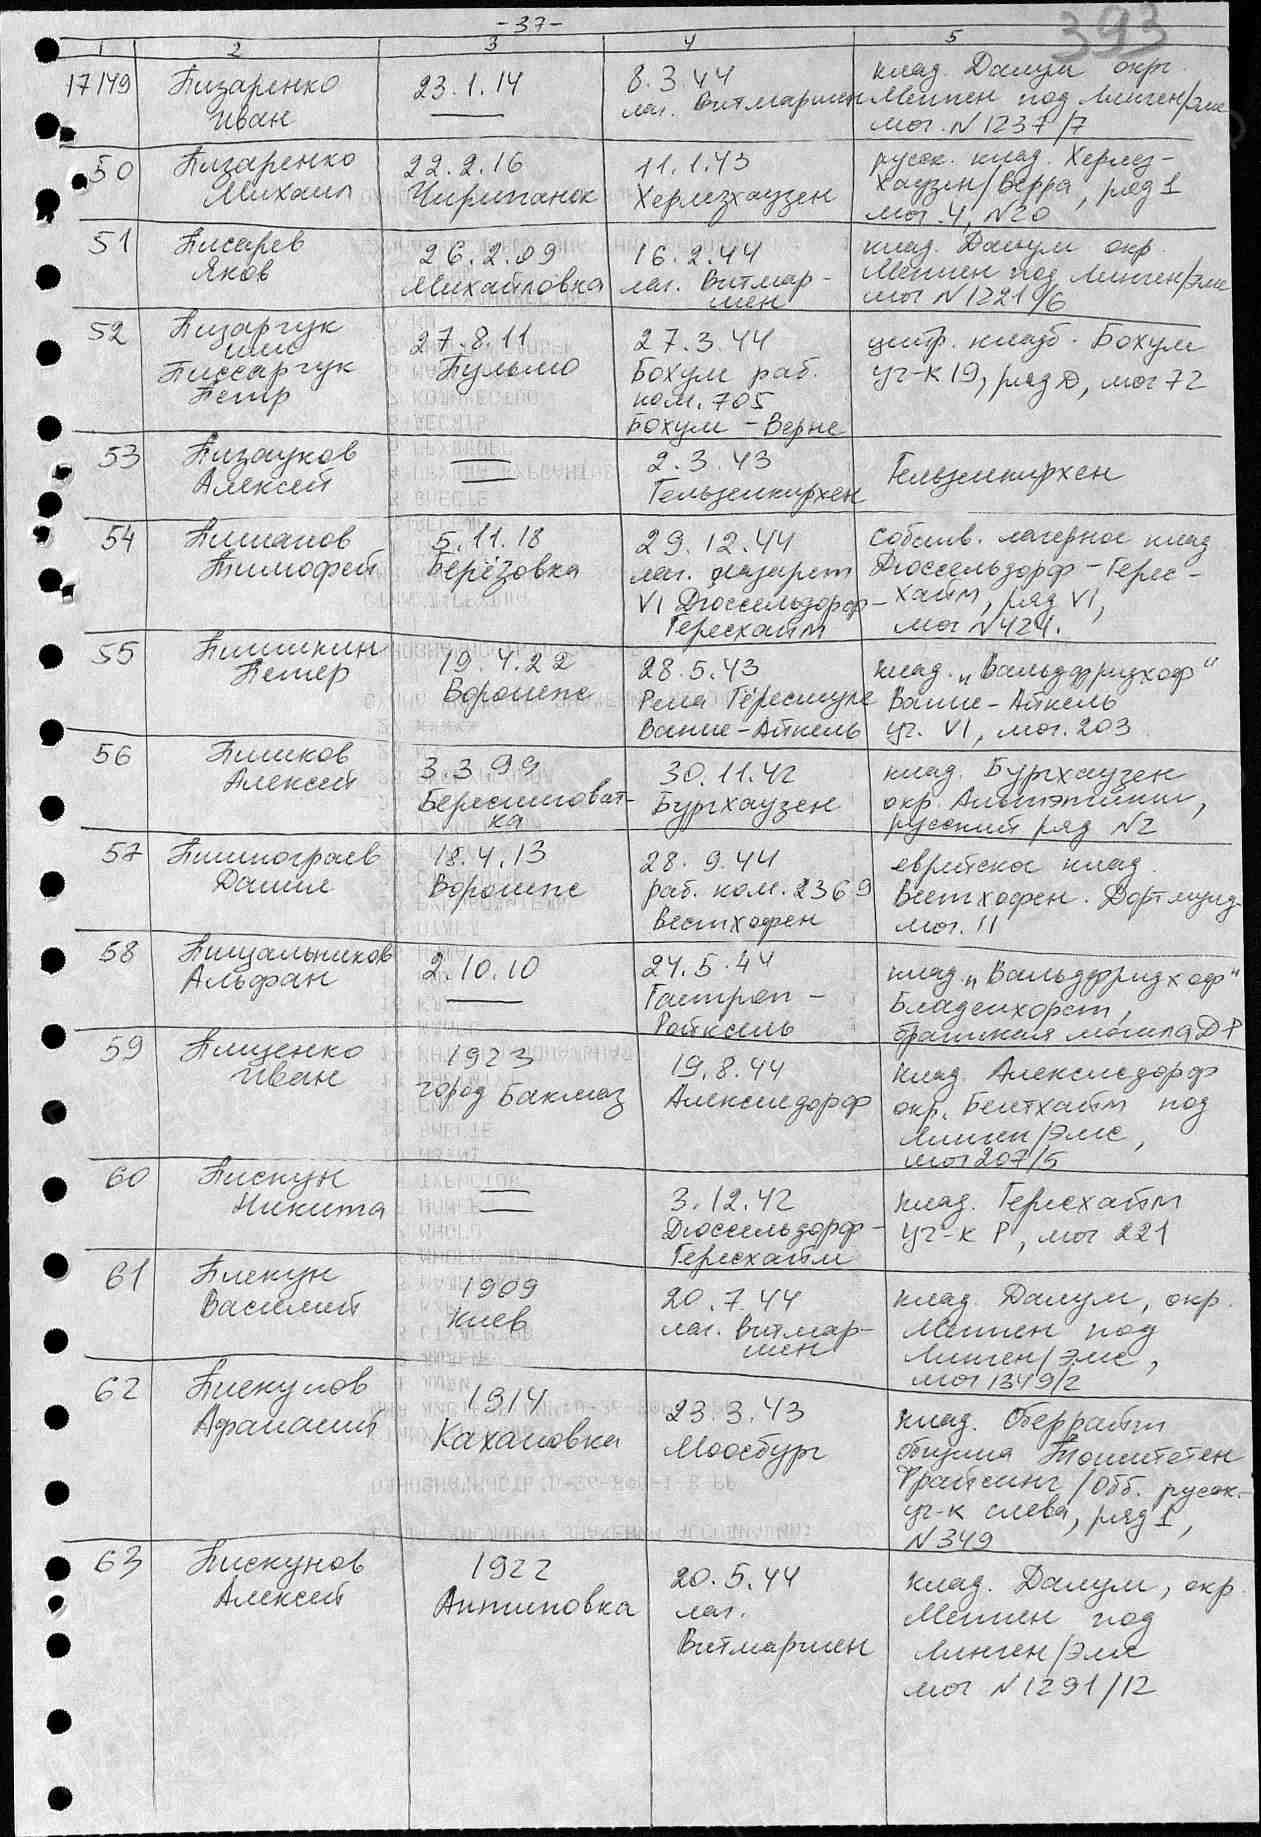 -37-
393
1 2 3 4 5
17149 Пизаренко 23.1.14 8.3.44 клад. Далум окр.
Иван — лаг. Витмаршен Меппен под Линген/Эмс
мог. N 1237/7
50 Пизаренко 22.2.16 11.1.43 русск. клад. Херлез-
Михаил Чирипанок Херлезхаузен хаузен/Верра, ряд 1
мог. 4, N20
51 Писарев 26.2.09 16.2.44 клад. Далум окр.
Яков Михайловка лаг. Витмар- Меппен под Линген/Эмс
шен мог N 1221/6
52 Пизарчук 27.8.11 27.3.44 центр. кладб. Бохум
или Пульмо Бохум раб. уч-к 19, ряд D, мог 72
Писсарчук ком. 705
Петр Бохум - Верне
53 Пизауков — 2.3.43 Гельзенкирхен
Алексей — Гельзенкирхен
54 Пишанов 5.11.18 29.12.44 собств. лагерное клад
Тимофей Берёзовка лаг. лазарет Дюссельдорф - Герес-
VI Дюссельдорф- хайм, ряд VI,
Гересхайм мог N 424.
55 Пишикин 19.4.22 28.5.43 клад. „Вальдфридхоф"
Петер Воронеж Ванне-Айкель Ванне-Айкель
уч. VI, мог. 203
56 Пишков 3.3.99 30.11.42 клад. Бургхаузен
Алексей Берестоват- Бургхаузен окр. Альтэттинг,
ка русский ряд N2
57 Пишпограев 18.4.13 28.9.44 еврейское клад.
Данил Воронеж раб. ком. 2369 Вестхофен. Дортмунд-
Вестхофен мог. 11
58 Пищальников 2.10.10 24.5.44 клад. „Вальдфридхоф"
Альфан — Гастроп - Бладенхорст,
Раукcель братская могила DP
59 Пищенко 1923 19.8.44 клад. Алексисдорф
Иван город Бакмаз Алексисдорф окр. Бентхайм под
Линген/Эмс,
мог 207/5
60 Пискун — 3.12.42 клад. Гересхайм
Никита — Дюссельдорф- уч-к P, мог 221
Гересхайм
61 Пискун 1909 20.7.44 клад. Далум, окр.
Василий Киев лаг. Витмар- Меппен под
шен Линген/Эмс,
мог 1349/2
62 Пискунов 1914 23.3.43 клад. Оберрайт
Афанасий Кахановка Моосбург община Тонштетен
Фрайсинг/Обб. русск.
уч-к слева, ряд 1,
N 349
63 Пискунов 1922 20.5.44 клад. Далум, окр.
Алексей Антиповка лаг. Меппен под
Витмаршен Линген/Эмс
мог N 1291/12